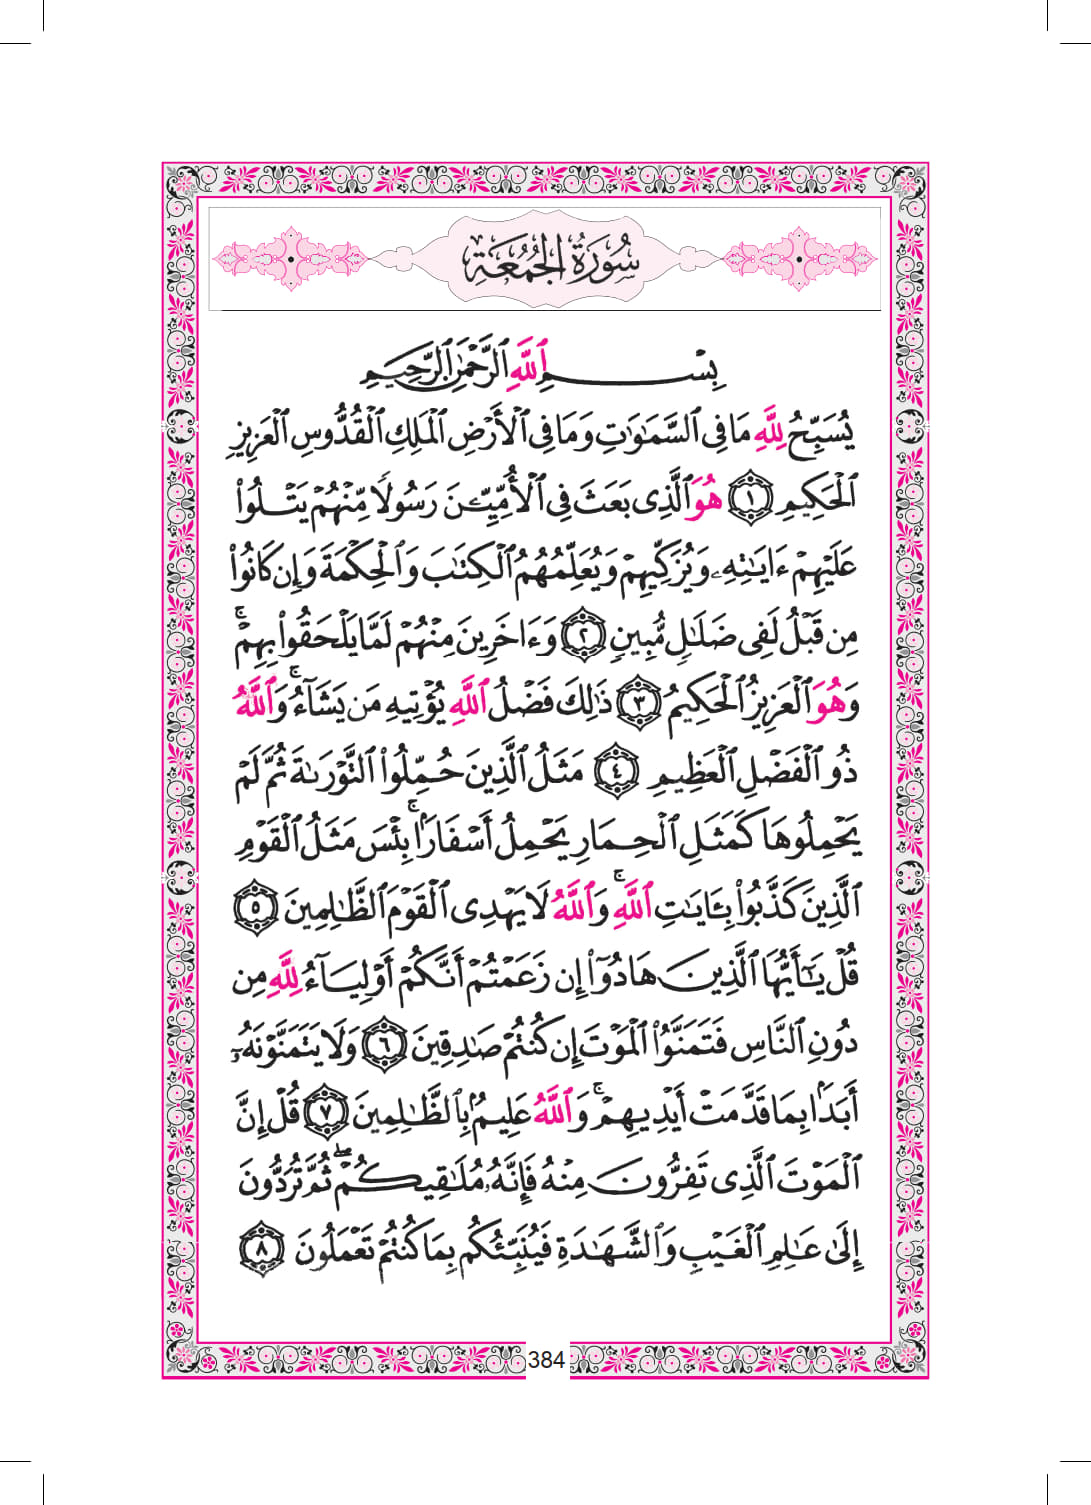 سُورَةُ الجُمُعَةِ
بِسْمِ ٱللَّهِ ٱلرَّحْمَٰنِ ٱلرَّحِيمِ
يُسَبِّحُ لِلَّهِ مَا فِى ٱلسَّمَٰوَٰتِ وَمَا فِى ٱلْأَرْضِ ٱلْمَلِكِ ٱلْقُدُّوسِ ٱلْعَزِيزِ
ٱلْحَكِيمِ ١ هُوَ ٱلَّذِى بَعَثَ فِى ٱلْأُمِّيِّـۧنَ رَسُولًا مِّنْهُمْ يَتْلُوا۟
عَلَيْهِمْ ءَايَٰتِهِۦ وَيُزَكِّيهِمْ وَيُعَلِّمُهُمُ ٱلْكِتَٰبَ وَٱلْحِكْمَةَ وَإِن كَانُوا۟
مِن قَبْلُ لَفِى ضَلَٰلٍ مُّبِينٍ ٢ وَءَاخَرِينَ مِنْهُمْ لَمَّا يَلْحَقُوا۟ بِهِمْ ۚ
وَهُوَ ٱلْعَزِيزُ ٱلْحَكِيمُ ٣ ذَٰلِكَ فَضْلُ ٱللَّهِ يُؤْتِيهِ مَن يَشَآءُ ۚ وَٱللَّهُ
ذُو ٱلْفَضْلِ ٱلْعَظِيمِ ٤ مَثَلُ ٱلَّذِينَ حُمِّلُوا۟ ٱلتَّوْرَىٰةَ ثُمَّ لَمْ
يَحْمِلُوهَا كَمَثَلِ ٱلْحِمَارِ يَحْمِلُ أَسْفَارًۢا ۚ بِئْسَ مَثَلُ ٱلْقَوْمِ
ٱلَّذِينَ كَذَّبُوا۟ بِـَٔايَٰتِ ٱللَّهِ ۚ وَٱللَّهُ لَا يَهْدِى ٱلْقَوْمَ ٱلظَّٰلِمِينَ ٥
قُلْ يَٰٓأَيُّهَا ٱلَّذِينَ هَادُوٓا۟ إِن زَعَمْتُمْ أَنَّكُمْ أَوْلِيَآءُ لِلَّهِ مِن
دُونِ ٱلنَّاسِ فَتَمَنَّوُا۟ ٱلْمَوْتَ إِن كُنتُمْ صَٰدِقِينَ ٦ وَلَا يَتَمَنَّوْنَهُۥٓ
أَبَدًۢا بِمَا قَدَّمَتْ أَيْدِيهِمْ ۚ وَٱللَّهُ عَلِيمٌۢ بِٱلظَّٰلِمِينَ ٧ قُلْ إِنَّ
ٱلْمَوْتَ ٱلَّذِى تَفِرُّونَ مِنْهُ فَإِنَّهُۥ مُلَٰقِيكُمْ ۖ ثُمَّ تُرَدُّونَ
إِلَىٰ عَٰلِمِ ٱلْغَيْبِ وَٱلشَّهَٰدَةِ فَيُنَبِّئُكُم بِمَا كُنتُمْ تَعْمَلُونَ ٨
384